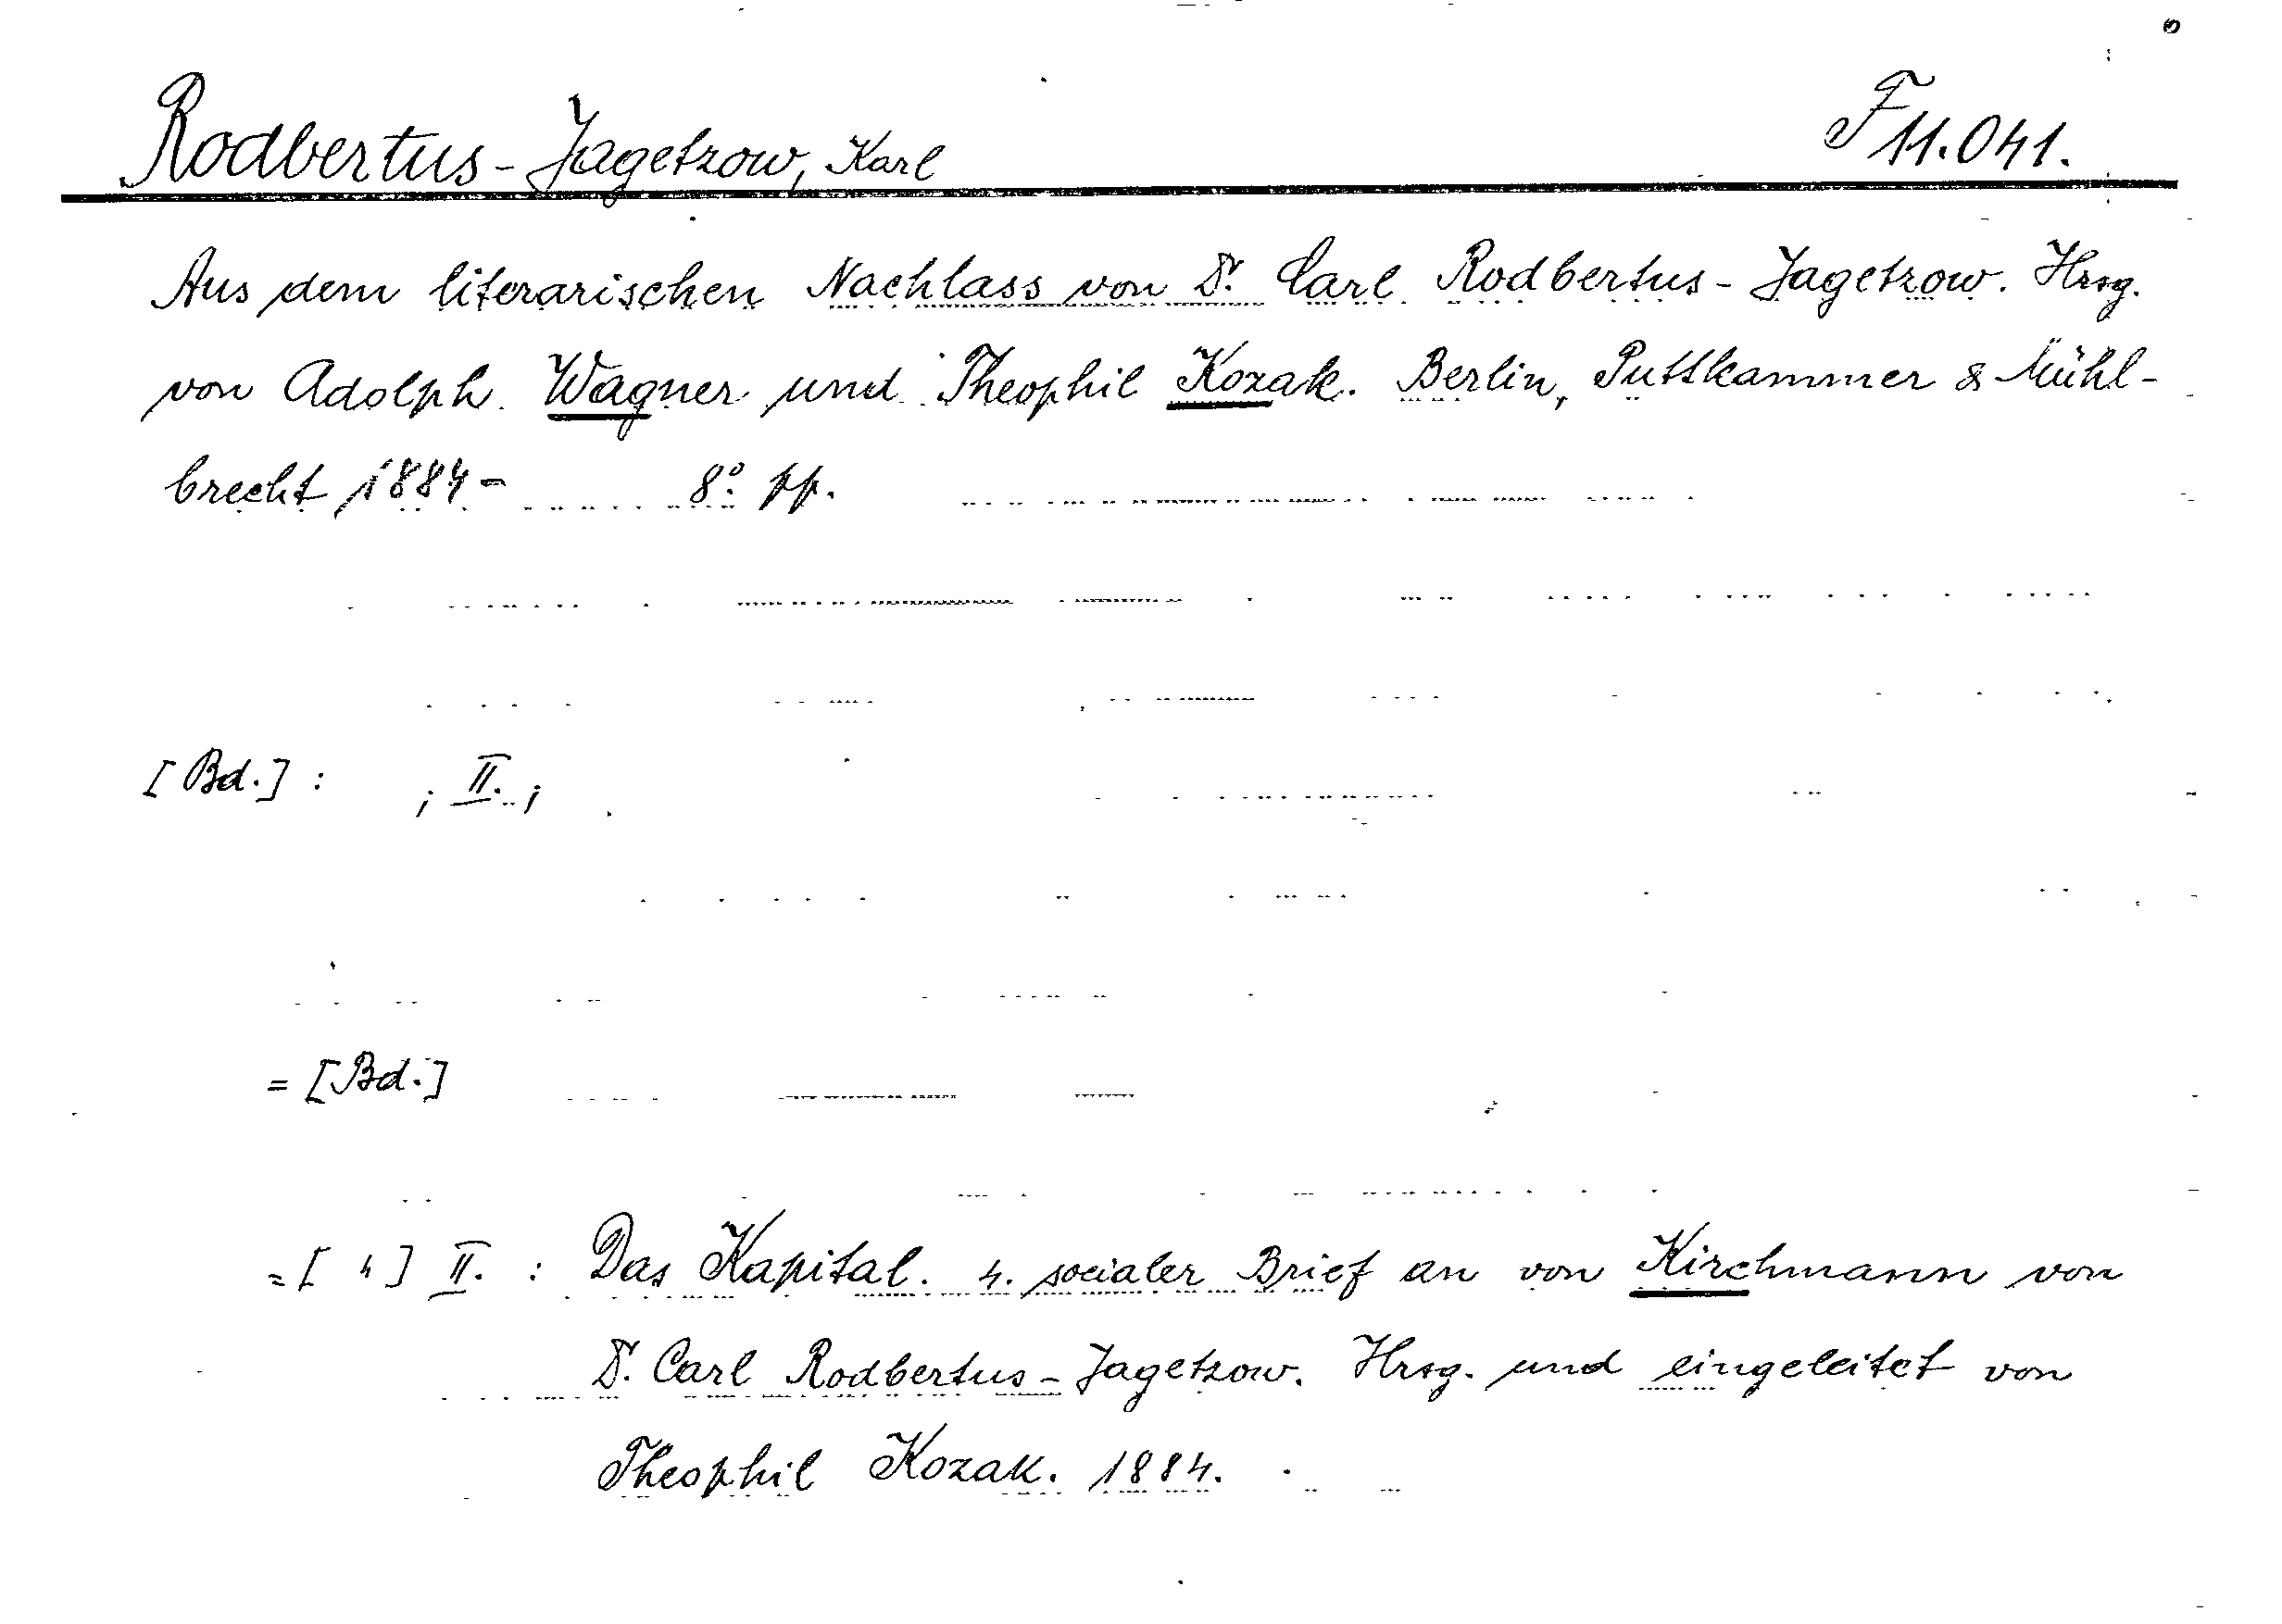 Rodbertus-Jagetzow, Karl F 11.041.
Aus dem literarischen Nachlass von Dr. Carl Rodbertus-Jagetzow. Hrsg.
von Adolph Wagner und Theophil Kozak. Berlin, Puttkammer & Mühl-
brecht 1884- 8° pp.
[Bd.] : ; II. ;
= [Bd.]
= [ 4 ] II. : Das Kapital. 4. socialer Brief an von Kirchmann von
Dr. Carl Rodbertus-Jagetzow. Hrsg. und eingeleitet von
Theophil Kozak. 1884.